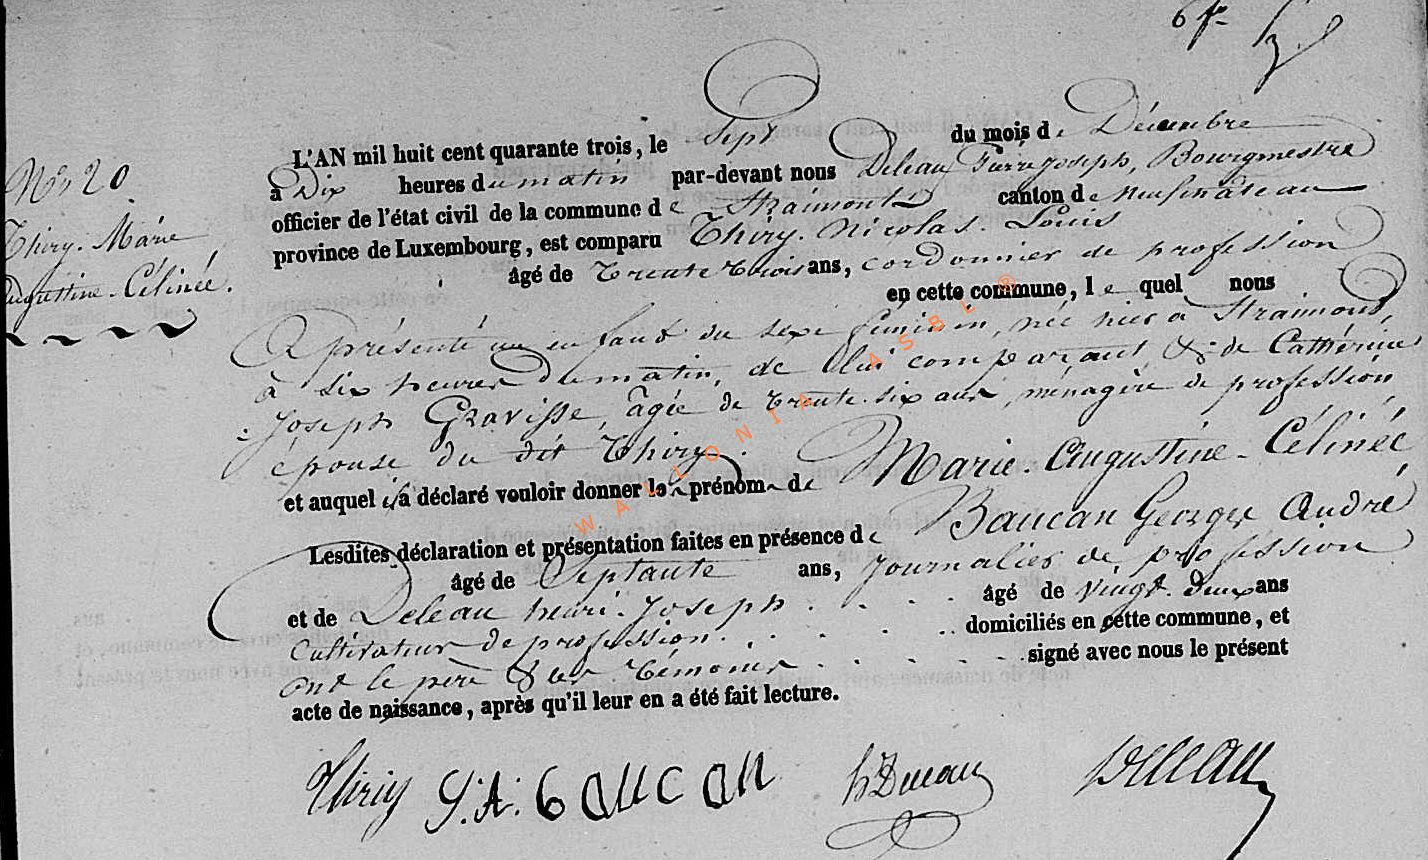 6 fo
No 20
Thiry. Marie
Augustine-Célinée.
L'AN mil huit cent quarante trois, le Sept du mois de Décembre
à Dix heures du matin par-devant nous Deleau Pierre joseph, Bourgmestre
officier de l'état civil de la commune de Straimont canton de Neufchâteau
province de Luxembourg, est comparu Thiry. Nicolas. Louis
âgé de Trente trois ans, cordonnier de profession
en cette commune, lequel nous
a présenté un enfant du sexe féminin, née hier à Straimont,
à six heures du matin, de lui comparant & de Cathérine
Joseph Gravisse, âgée de trente-six ans, ménagère de profession
épouse du dit Thiry.
et auquel il a déclaré vouloir donner le prénom de Marie-Augustine-Célinée
Lesdites déclaration et présentation faites en présence de Baucan Georges André
âgé de Septante ans, journalier de profession
et de Deleau henri-Joseph . . . . âgé de vingt-deux ans
Cultivateur de profession. . . . . . domiciliés en cette commune, et
ont le père & les témoins . . . . . . signé avec nous le présent
acte de naissance, après qu'il leur en a été fait lecture.
Thiry G.A. baucan h Deleau Deleau
WALLONIA ASBL ®